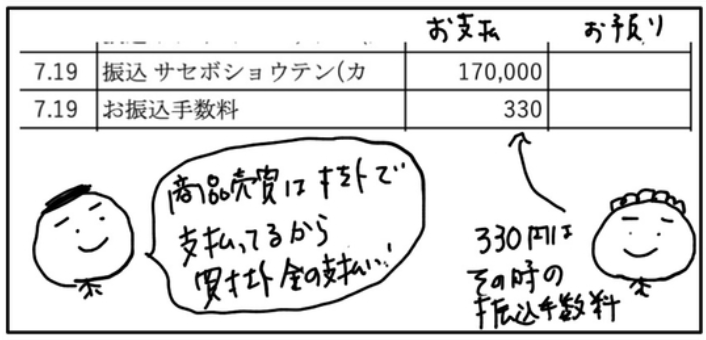 お支払 お預り
7.19 振込 サセボショウテン(カ 170,000
7.19 お振込手数料 330
商品売買は掛けで
支払ってるから
買掛金の支払い!
330円は
その時の
振込手数料